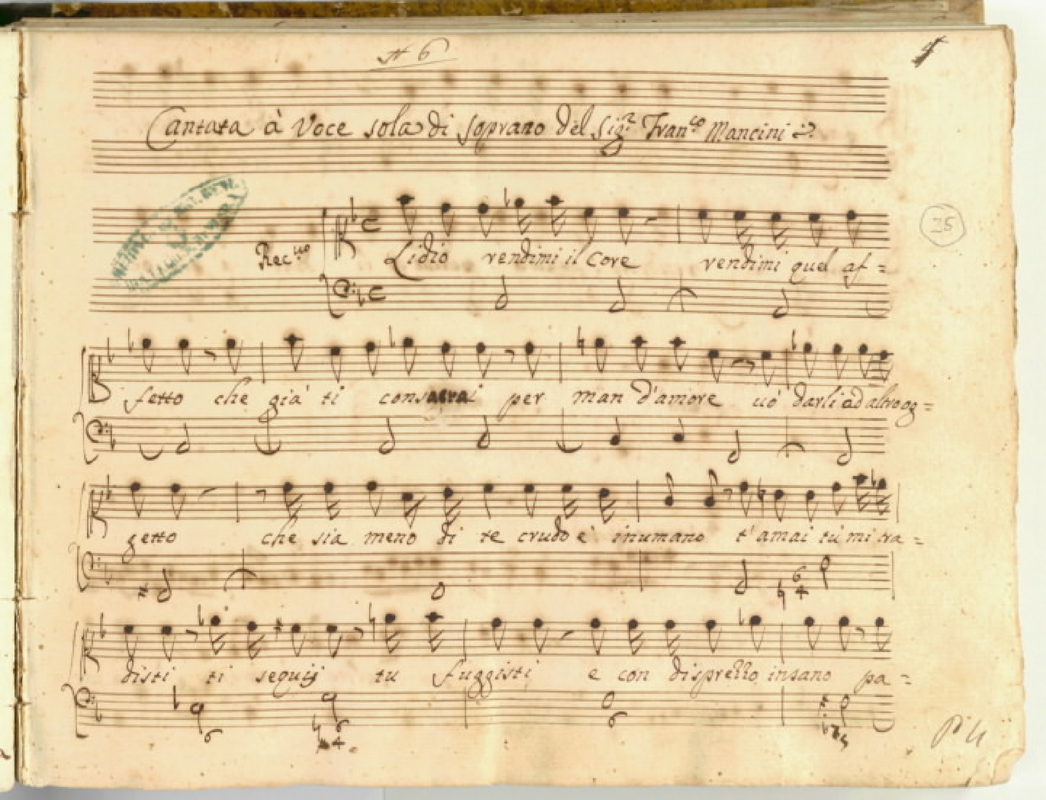 # 6
Cantata à Voce sola di soprano del Sig.r Fran.co Mancini
25
Rec.tivo Lidio vendimi il Core vendimi quel af=
fetto che già ti consacrai per man d'amore uò darli ad altro og=
getto che sia meno di te crudo e inumano t'amai tù mi tra=
disti ti seguij tu fuggisti e con disprezzo insano pa=